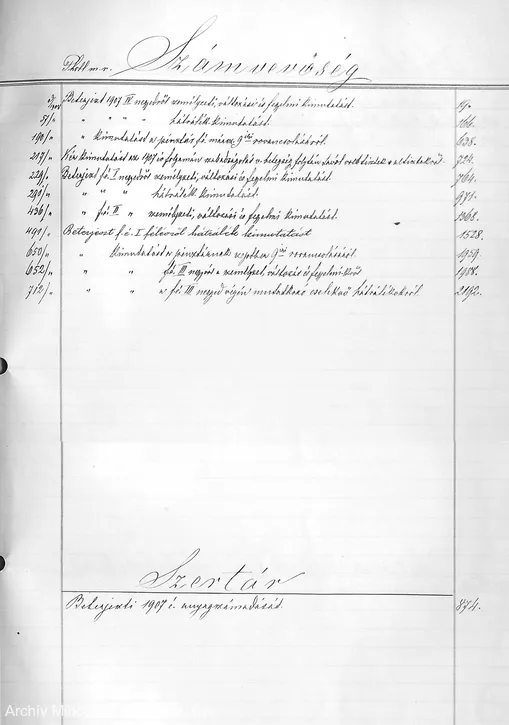 Számvevőség
3/908 Beterjeszt 1907 IV negyedről személyzeti, változási és fegyelmi kimutatást. 19.
51/" " " " " hátrálék kimutatást. 166.
190/" " kimutatást a pénztár f. é. márcz. 9 iki rovancsolásról. 638.
217/" Kér kimutatást az 1907 és folyamán szabadságolt v. betegség folytán távol volt tisztek és altisztekről. 724.
229/" Beterjeszt f. é. I negyedről személyzeti, változási és fegyelmi kimutatást. 764.
290/" " " " hátrálék kimutatást. 971.
436/" " f. é. II " személyzeti, változási és fegyelmi kimutatást. 1368.
490/" Beterjeszt f. é. I félévről hátrálék kimutatást 1528.
650/" " kimutatást a pénztárnak szeptber 9 iki rovancsolásáról. 1959.
652/" " " f. é. III negyed a személyzet, változás és fegyelmikről 1988.
712/" " " a f. é. III negyed végén mutatkozó cselekvő hátrálékokról. 2192.
Szertár
Beterjeszti 1907 é. anyagszámadását. 874.
Archiv